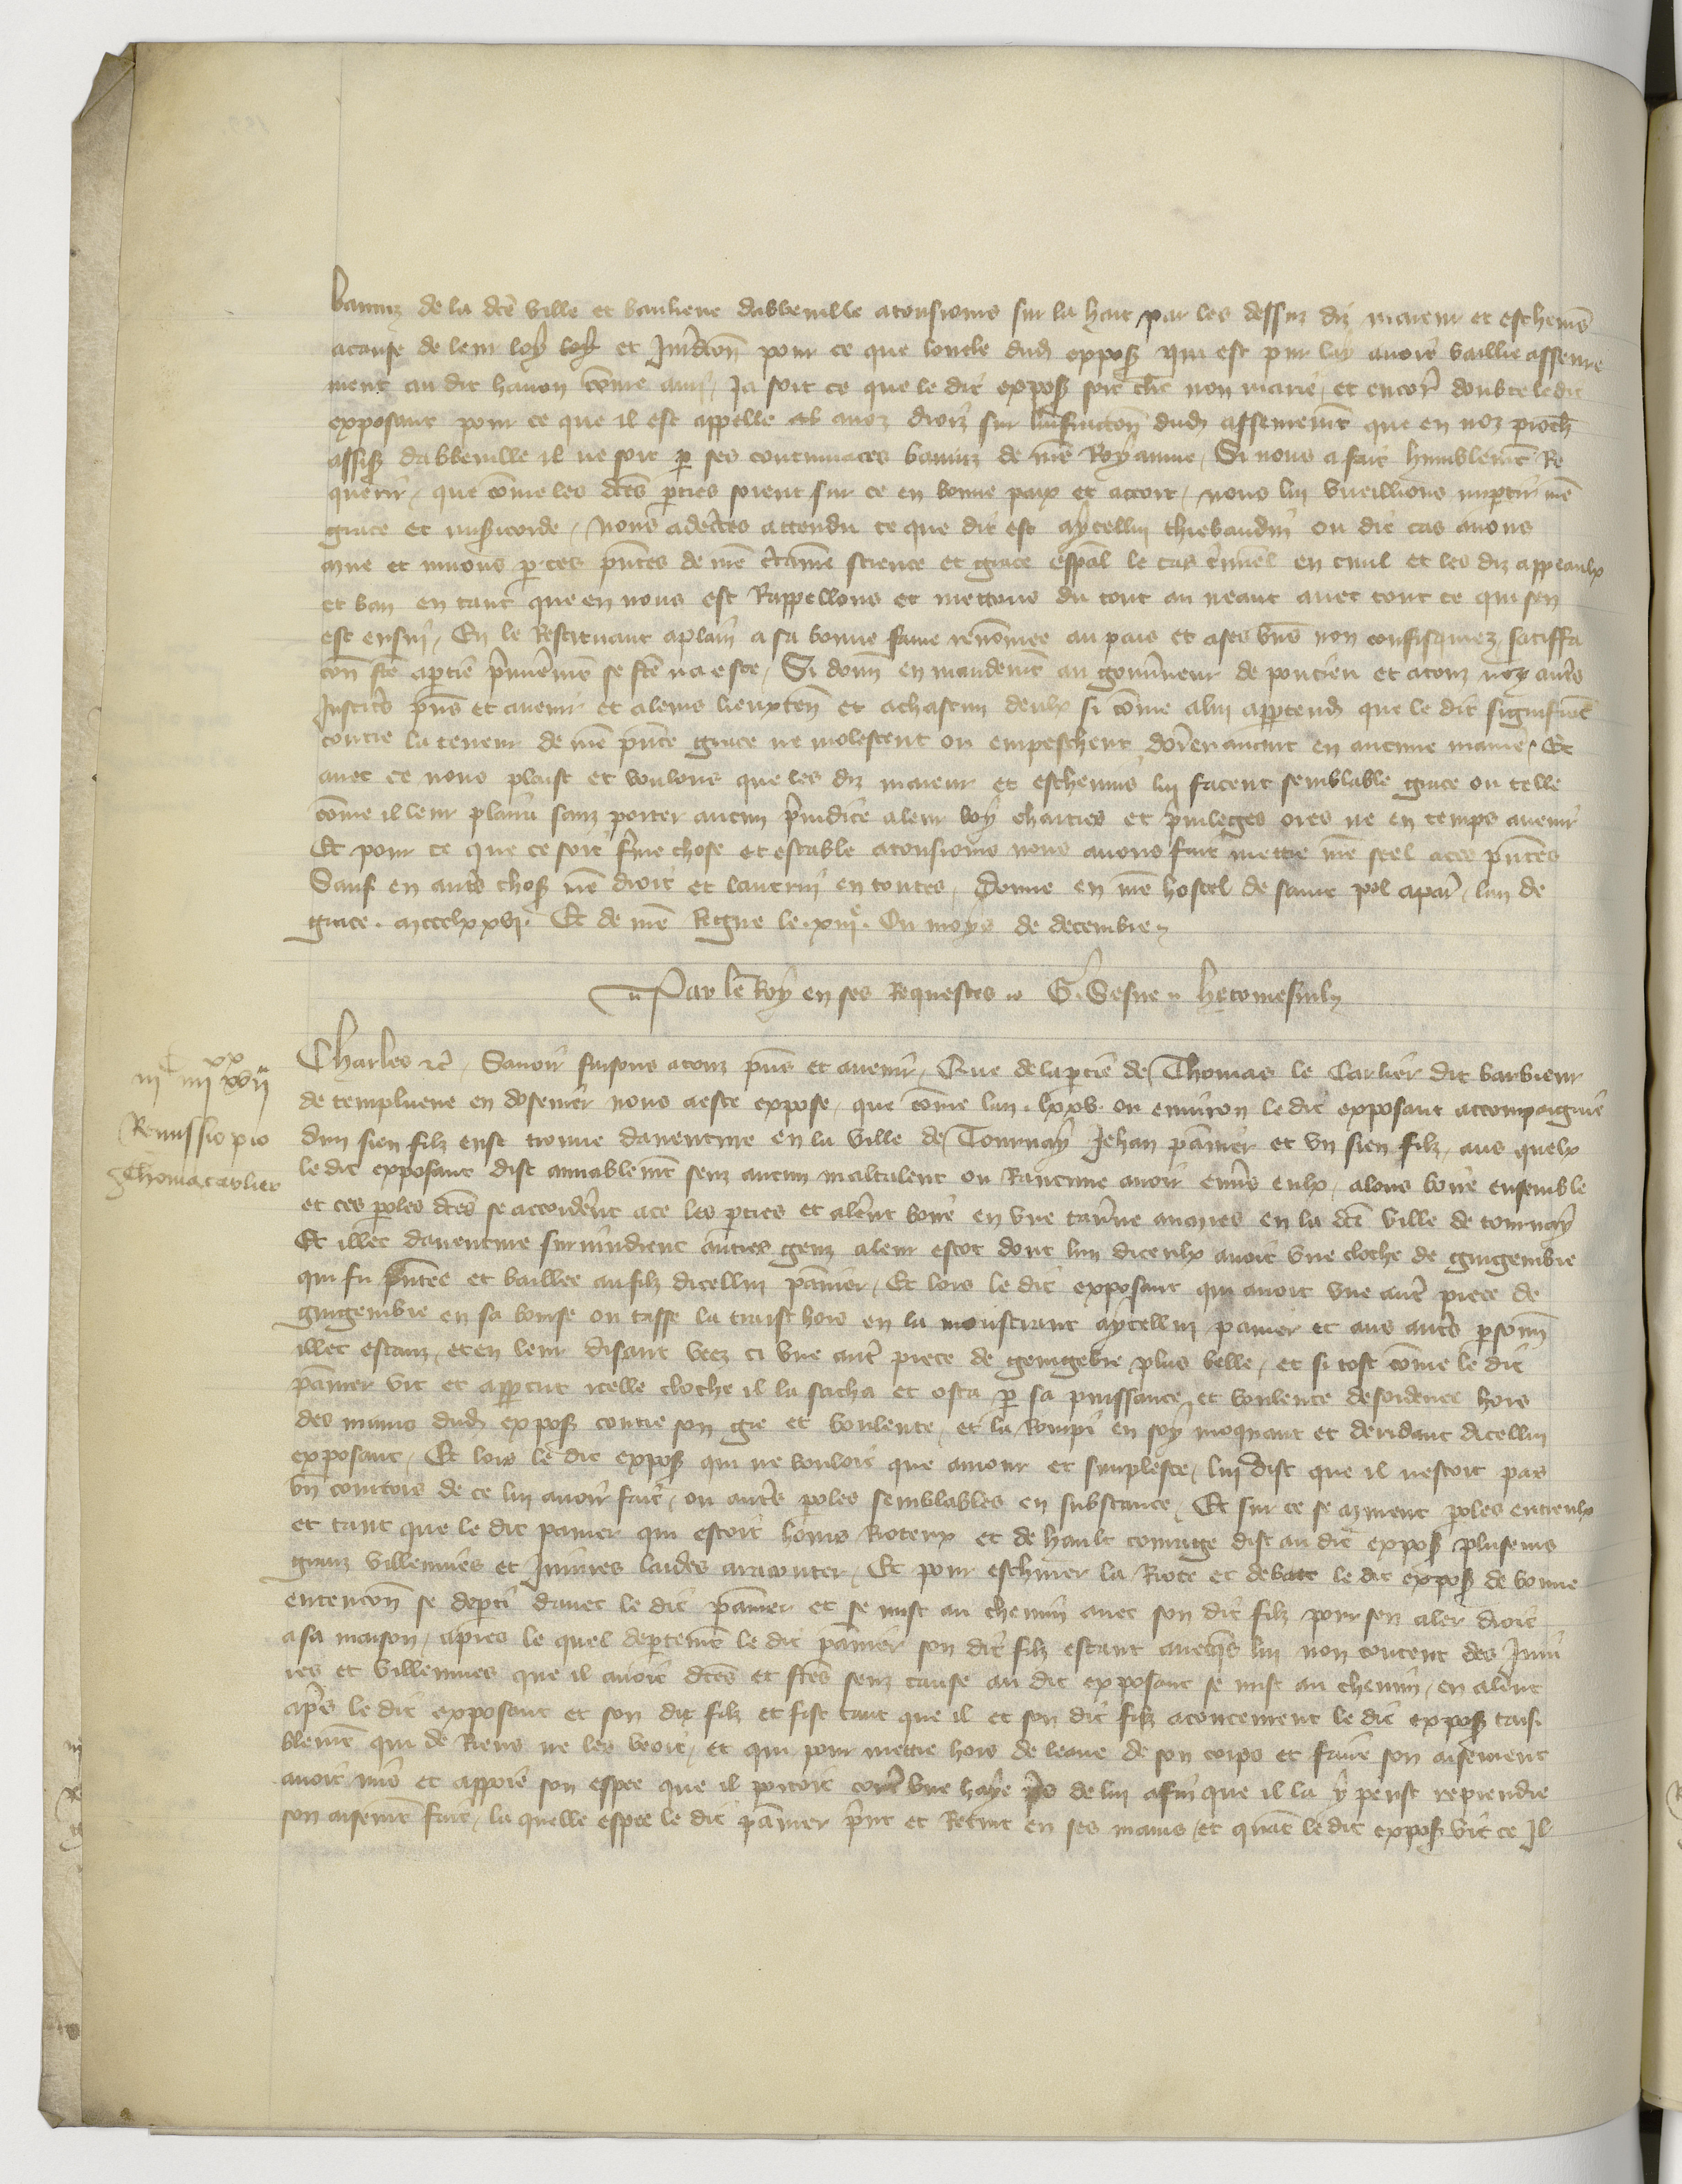 baniz de la dcē ville et banlieue dabbeville atousiours sur la hart par les dessus diz maieur et escheuis
acause de leur loy loy et Jurdcon pour ce que loncle dud expos qui est pour lay auoit baillie asseure
ment au dit hanon cōme amy, Ja soit ce que le dit expos soit clerc non marie, et encor doubte le dit
exposant pour ce que il est appelle a noz droiz sur linfracton dud asseuremt que en noz proch
assis dabbeville il ne soit p ses contumaces baniz de nrē Royaume, Si nous a fait humblemt Re
querir, que cōme les dcēs pties soient sur ce en bonne paix et accort, nous lui vueillions impartir nrē
grace et misicorde, Nous adecertes attendu ce que dit est aycellui thiebaudin ou dit cas auons
mue et muons p ces pntes de nrē certaine science et grace espāl le cas criminel en ciuil et les diz appeaulx
et ban en tant que en nous est Rappellons et mettons du tout au neant auec tout ce qui sen
est ensui, En le Restituant aplain a sa bonne fame renōmee au pais et ases bns non confisquez, satiffa
cōn fte aptie premieremt se fte na este, Si donn en mandemt au gouuneur de pontieu et atouz noz autres
Justics pns et auenir et aleurs lieuxten et achascun deulx si cōme alui apptend que le dit signifiāt
contre la teneur de nrē pnte grace ne molestent ou empeschent dorenauant en aucune maniē. Et
auec ce nous plaist et voulons que les diz maieur et escheuins lui facent semblable grace ou telle
cōme il leur plaira sanz porter aucun preiudice aleur loy chartres et priuileges ores ne en temps auenir
Et pour ce que ce soit ferme chose et estable atousiours nous auons fait mettre nrē seel aces pntes
Sauf en autrēs chos nrē droit et lautruy en toutes, Donne en nrē hostel de saint pol apar, lan de
grace. mccclxxvj. Et de nrē Regne le xiije. Ou moys de decembre
Par le Roy en ses Requestes G. Sesne
Charles etc, Sauoir faisons atouz pns et auenir, Que de la ptie de Thomas le Carlier dit barbieur
iijc iiijxx xvij
de templueue en dosemer nous aeste expose, que cōme lan. lxxv. ou enuiron le dit exposant accompaignie
Remissio pro
dun sien filz eust trouue dauenture en la ville de Tournay Jehan pamier et vn sien filz, aus quelx
Thoma carlier
le dit exposant dist amiablemt senz aucun maltalent ou Rancune auoir enuers eulx, alons boire ensemble
et ces poles dcēs se accorderent ace les pties et alerent boire en vne tauerne aucques en la dcē ville de tournay
Et illec dauenture suruindrent autres genz aleur escot dont lun diceulx auoit vne cloche de gingembre
qui fu pntee et baillee au filz dicellui pamier, Et lors le dit exposant qui auoit vne autre piece de
gingembre en sa bourse ou tasse la traist hors en la monstrant aycellui pamier et aus autrēs psonn
illec estanz, et en leur disant veez ci vne autre piece de gemgebre plus belle, et si tost cōme le dit
pamier vit et appercut icelle cloche il la sacha et osta p sa puissance et voulente desordenee hors
des mains dud expos contre son gre et voulente, et la Rompi en soy moquant et deridant dicellui
exposant, Et lors le dit expos qui ne vouloit que amour et simplesce, lui dist que il nestoit pas
bn courtois de ce lui auoir fait, ou autrēs poles semblables en substance, Et sur ce se meurent poles entreulx
et tant que le dit pamier qui estoit homs Rioteux et de hault courage dist au dit expos pluseurs
granz villennies et Jniures laides araconter, Et pour eschiuer la Riote et debate le dit expos de bonne
entencōn se depti dauec le dit pamier et se mist au chemin auec son dit filz pour sen aler droit
a sa maison, apres le quel deptemt le dit pamier son dit filz estant auecqs lui non content des Jniu
res et villennies que il auoit dcēs et ftes senz cause au dit exposant se mist au chemin, en alant
aprēs le dit exposant et son dit filz et fist tant que il et son dit filz aconceurent le dit expos taisi
blemt qui de Riens ne les veoit, et qui pour mettre hors de leaue de son corps et faire son aisement
auoit mis et appoie son espee que il portoit contre vne haye pres de lui afin que il la y peust reprendre
son aisemt fait, la quelle espee le dit pamier print et Retint en ses mains, et quāt le dit expos vit ce Il